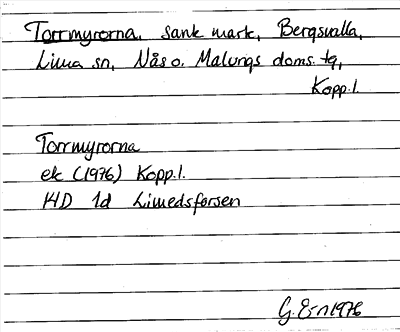 Torrmyrorna, sank mark, Bergsvalla,
Lima sn, Nås o. Malungs doms. tg,
Kopp.l.
Torrmyrorna
ek (1976) Kopp.l.
HD 1d Limedsforsen
G. Ern 1976